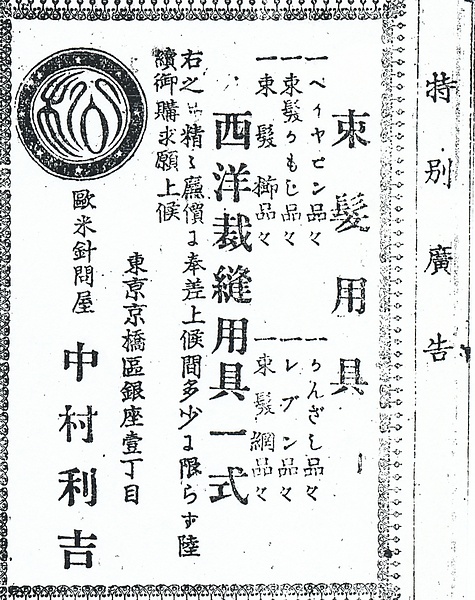 特別廣告
束髮用具
一ヘイヤピン品々
一かんざし品々
一束髮かもじ品々
一レブン品々
一束髮櫛品々
一束髮網品々
西洋裁縫用具一式
右之比精々廉價に奉差上候間多少に限らず陸
續御購求願上候
東京京橋區銀座壹丁目
歐米針問屋
中村利吉